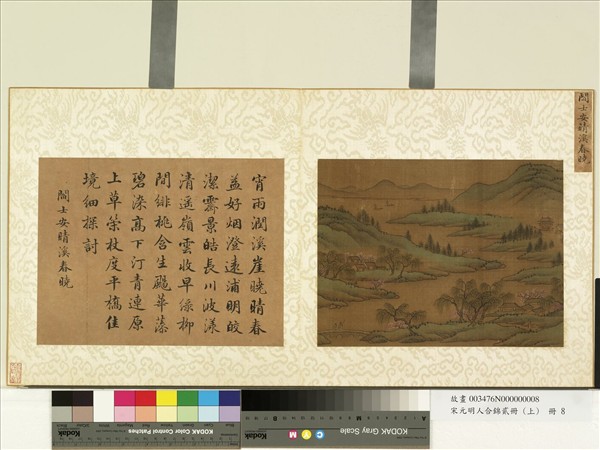 閻士安晴溪春曉
宵雨潤溪崖曉晴春
益好烟澄遠浦明皎
潔霽景皓長川波漾
清遥嶺雲收早綠柳
間緋桃含生颺華藻
碧深高下汀青連原
上草策杖度平橋佳
境細探討
閻士安晴溪春曉
KODAK Color Control Patches
Kodak
KODAK Gray Scale
C Y M
Kodak
故畫 003476N000000008
宋元明人合錦貳冊（上） 冊 8